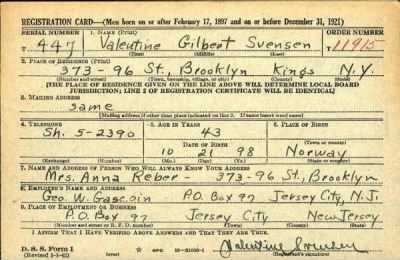 REGISTRATION CARD—(Men born on or after February 17, 1897 and on or before December 31, 1921)
SERIAL NUMBER 1. NAME (Print) ORDER NUMBER
T 447 Valentine Gilbert Svensen 11915
(First) (Middle) (Last)
2. PLACE OF RESIDENCE (Print)
373-96 St., Brooklyn Kings N.Y.
(Number and street) (Town, township, village, or city) (County) (State)
[THE PLACE OF RESIDENCE GIVEN ON THE LINE ABOVE WILL DETERMINE LOCAL BOARD
JURISDICTION; LINE 2 OF REGISTRATION CERTIFICATE WILL BE IDENTICAL]
3. MAILING ADDRESS
Same
[Mailing address if other than place indicated on line 2. If same insert word same]
4. TELEPHONE 5. AGE IN YEARS 6. PLACE OF BIRTH
Sh. 5-2390 43
DATE OF BIRTH
10 21 98 Norway
(Exchange) (Number) (Mo.) (Day) (Yr.) (State or country)
7. NAME AND ADDRESS OF PERSON WHO WILL ALWAYS KNOW YOUR ADDRESS
Mrs. Anna Reber - 373-96 St., Brooklyn
8. EMPLOYER'S NAME AND ADDRESS
Geo. W. Gascoin P.O. Box 97 Jersey City, N.J.
9. PLACE OF EMPLOYMENT OR BUSINESS
P.O. Box 97 Jersey City New Jersey
(Number and street or R. F. D. number) (Town) (County) (State)
I AFFIRM THAT I HAVE VERIFIED ABOVE ANSWERS AND THAT THEY ARE TRUE.
D. S. S. Form 1
(Revised 1-1-42)
Valentine Svensen